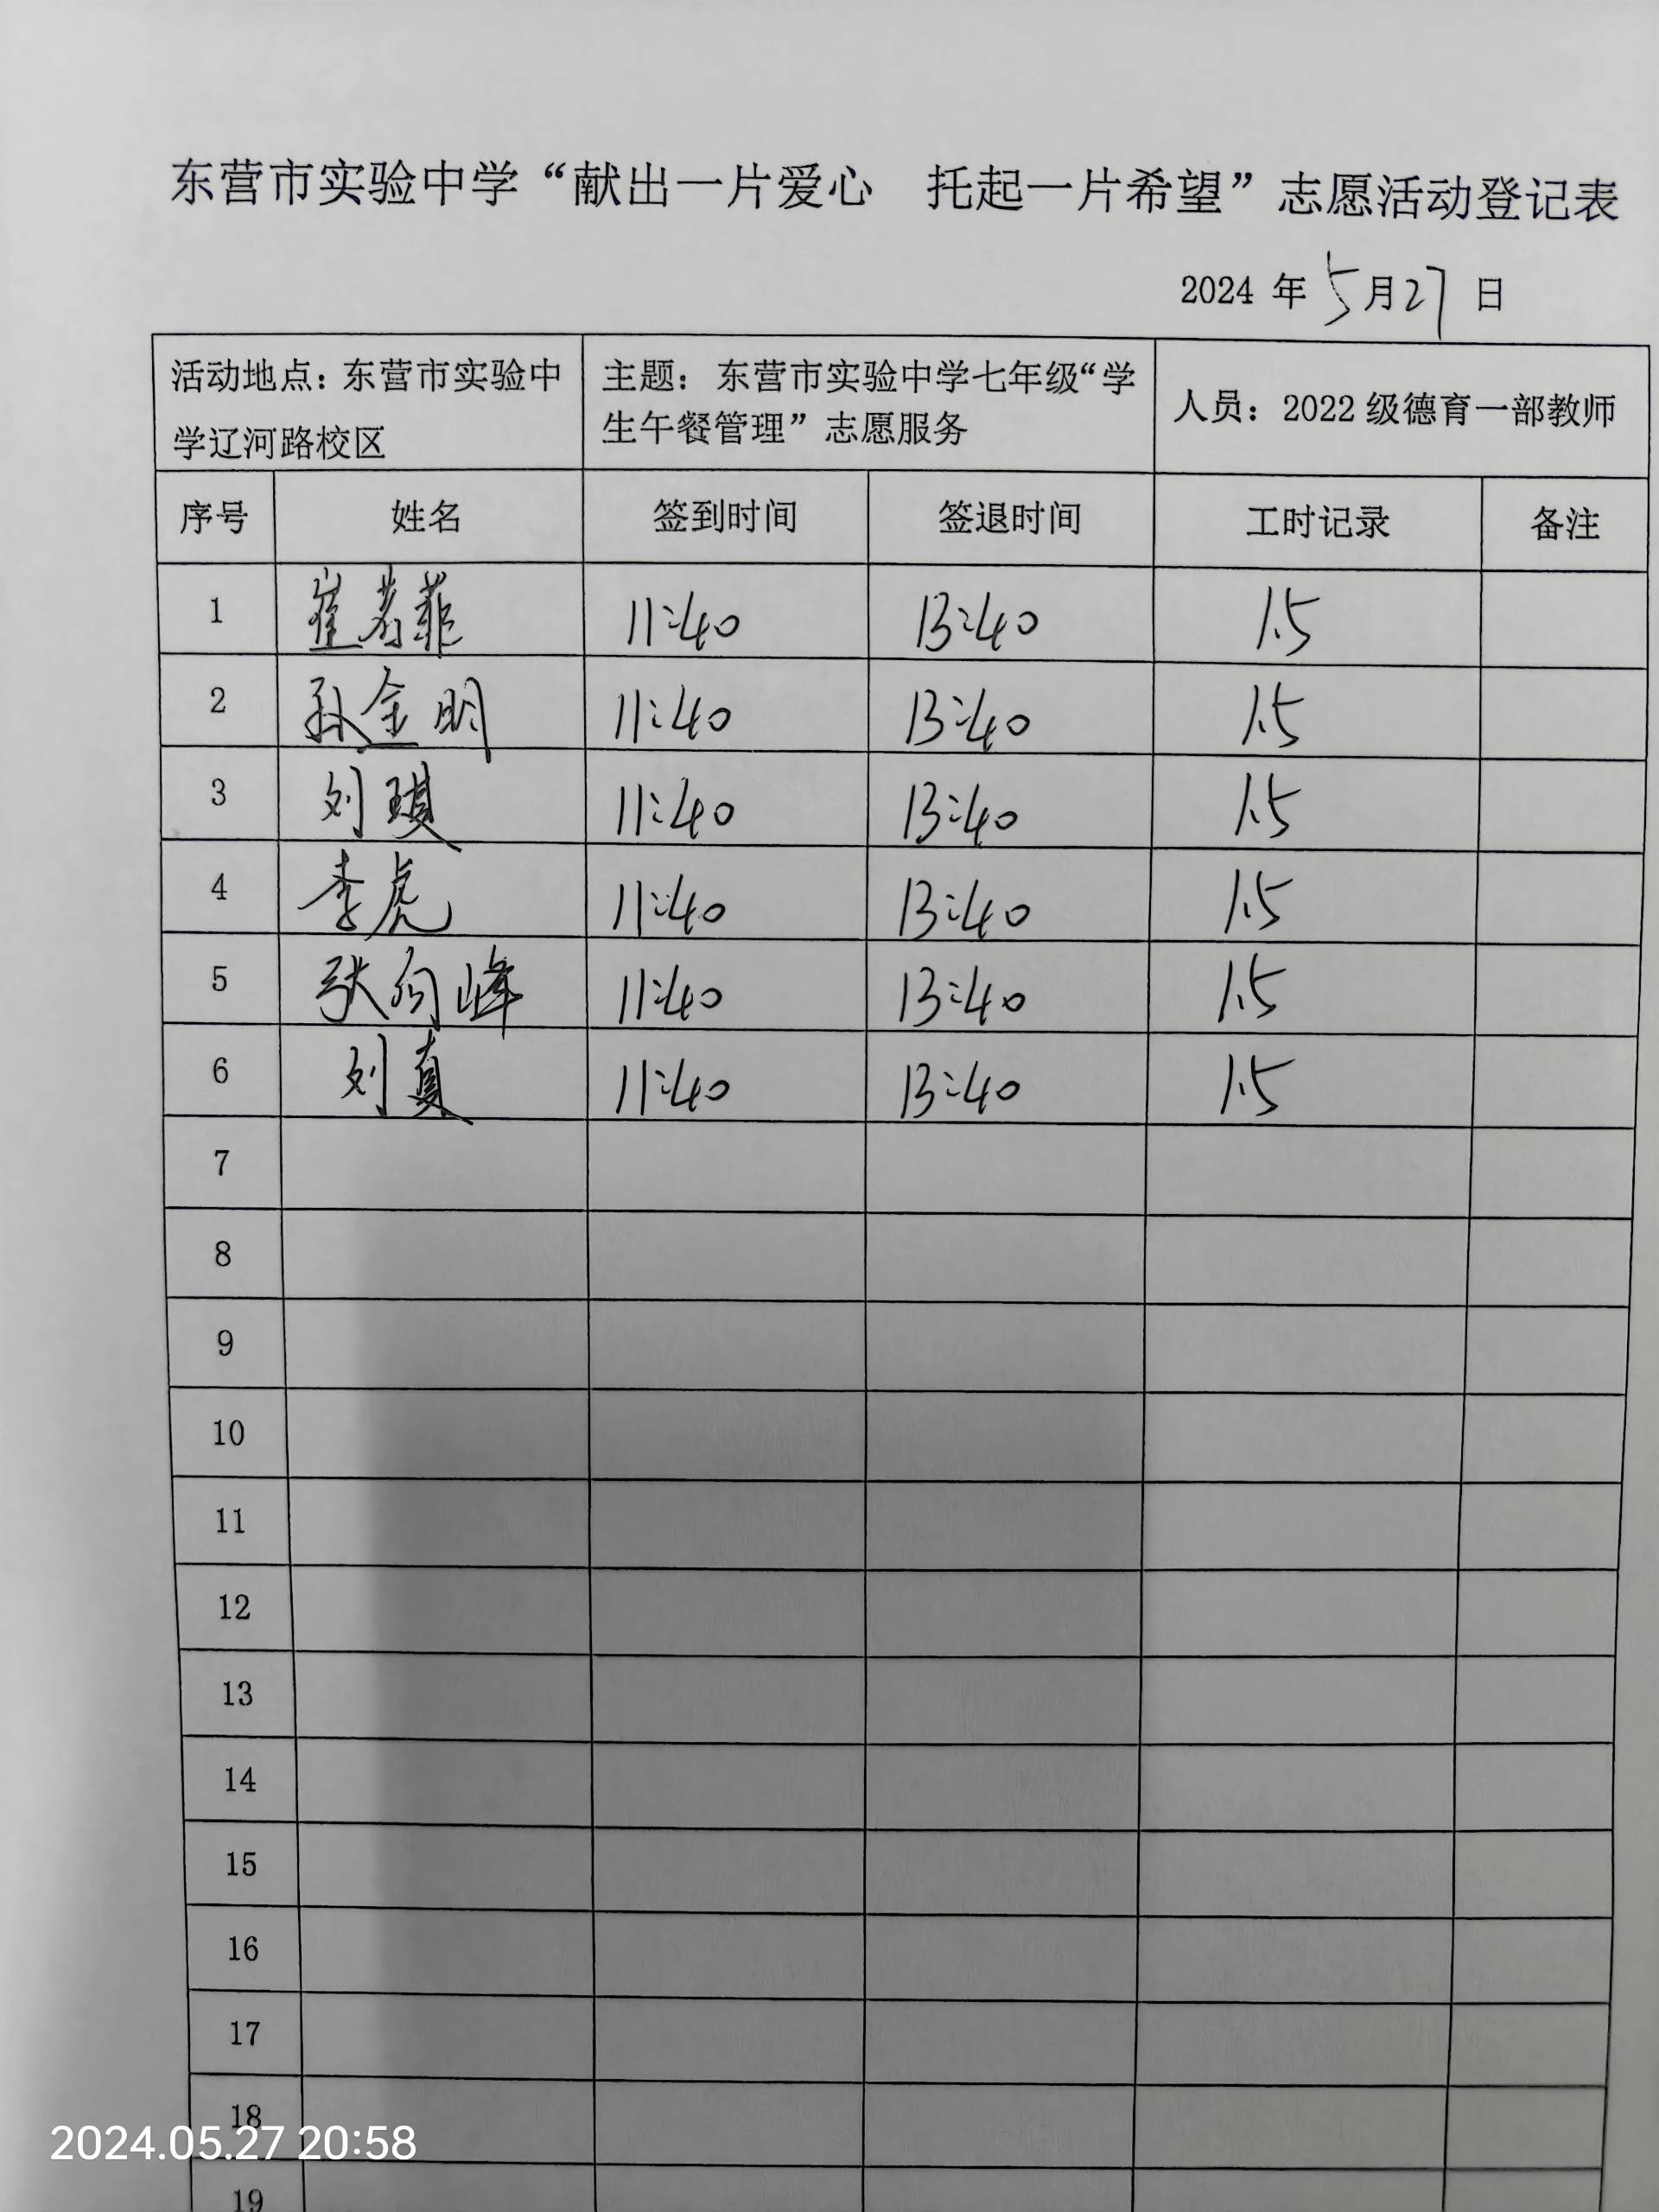 东营市实验中学“献出一片爱心 托起一片希望”志愿活动登记表
2024 年 5月27 日
活动地点：东营市实验中学辽河路校区 主题： 东营市实验中学七年级“学生午餐管理”志愿服务 人员：2022 级德育一部教师
序号 姓名 签到时间 签退时间 工时记录 备注
1 崔若菲 11:40 13:40 1.5
2 孙金明 11:40 13:40 1.5
3 刘琪 11:40 13:40 1.5
4 李虎 11:40 13:40 1.5
5 张向峰 11:40 13:40 1.5
6 刘真 11:40 13:40 1.5
7
8
9
10
11
12
13
14
15
16
17
18
2024.05.27 20:58
19